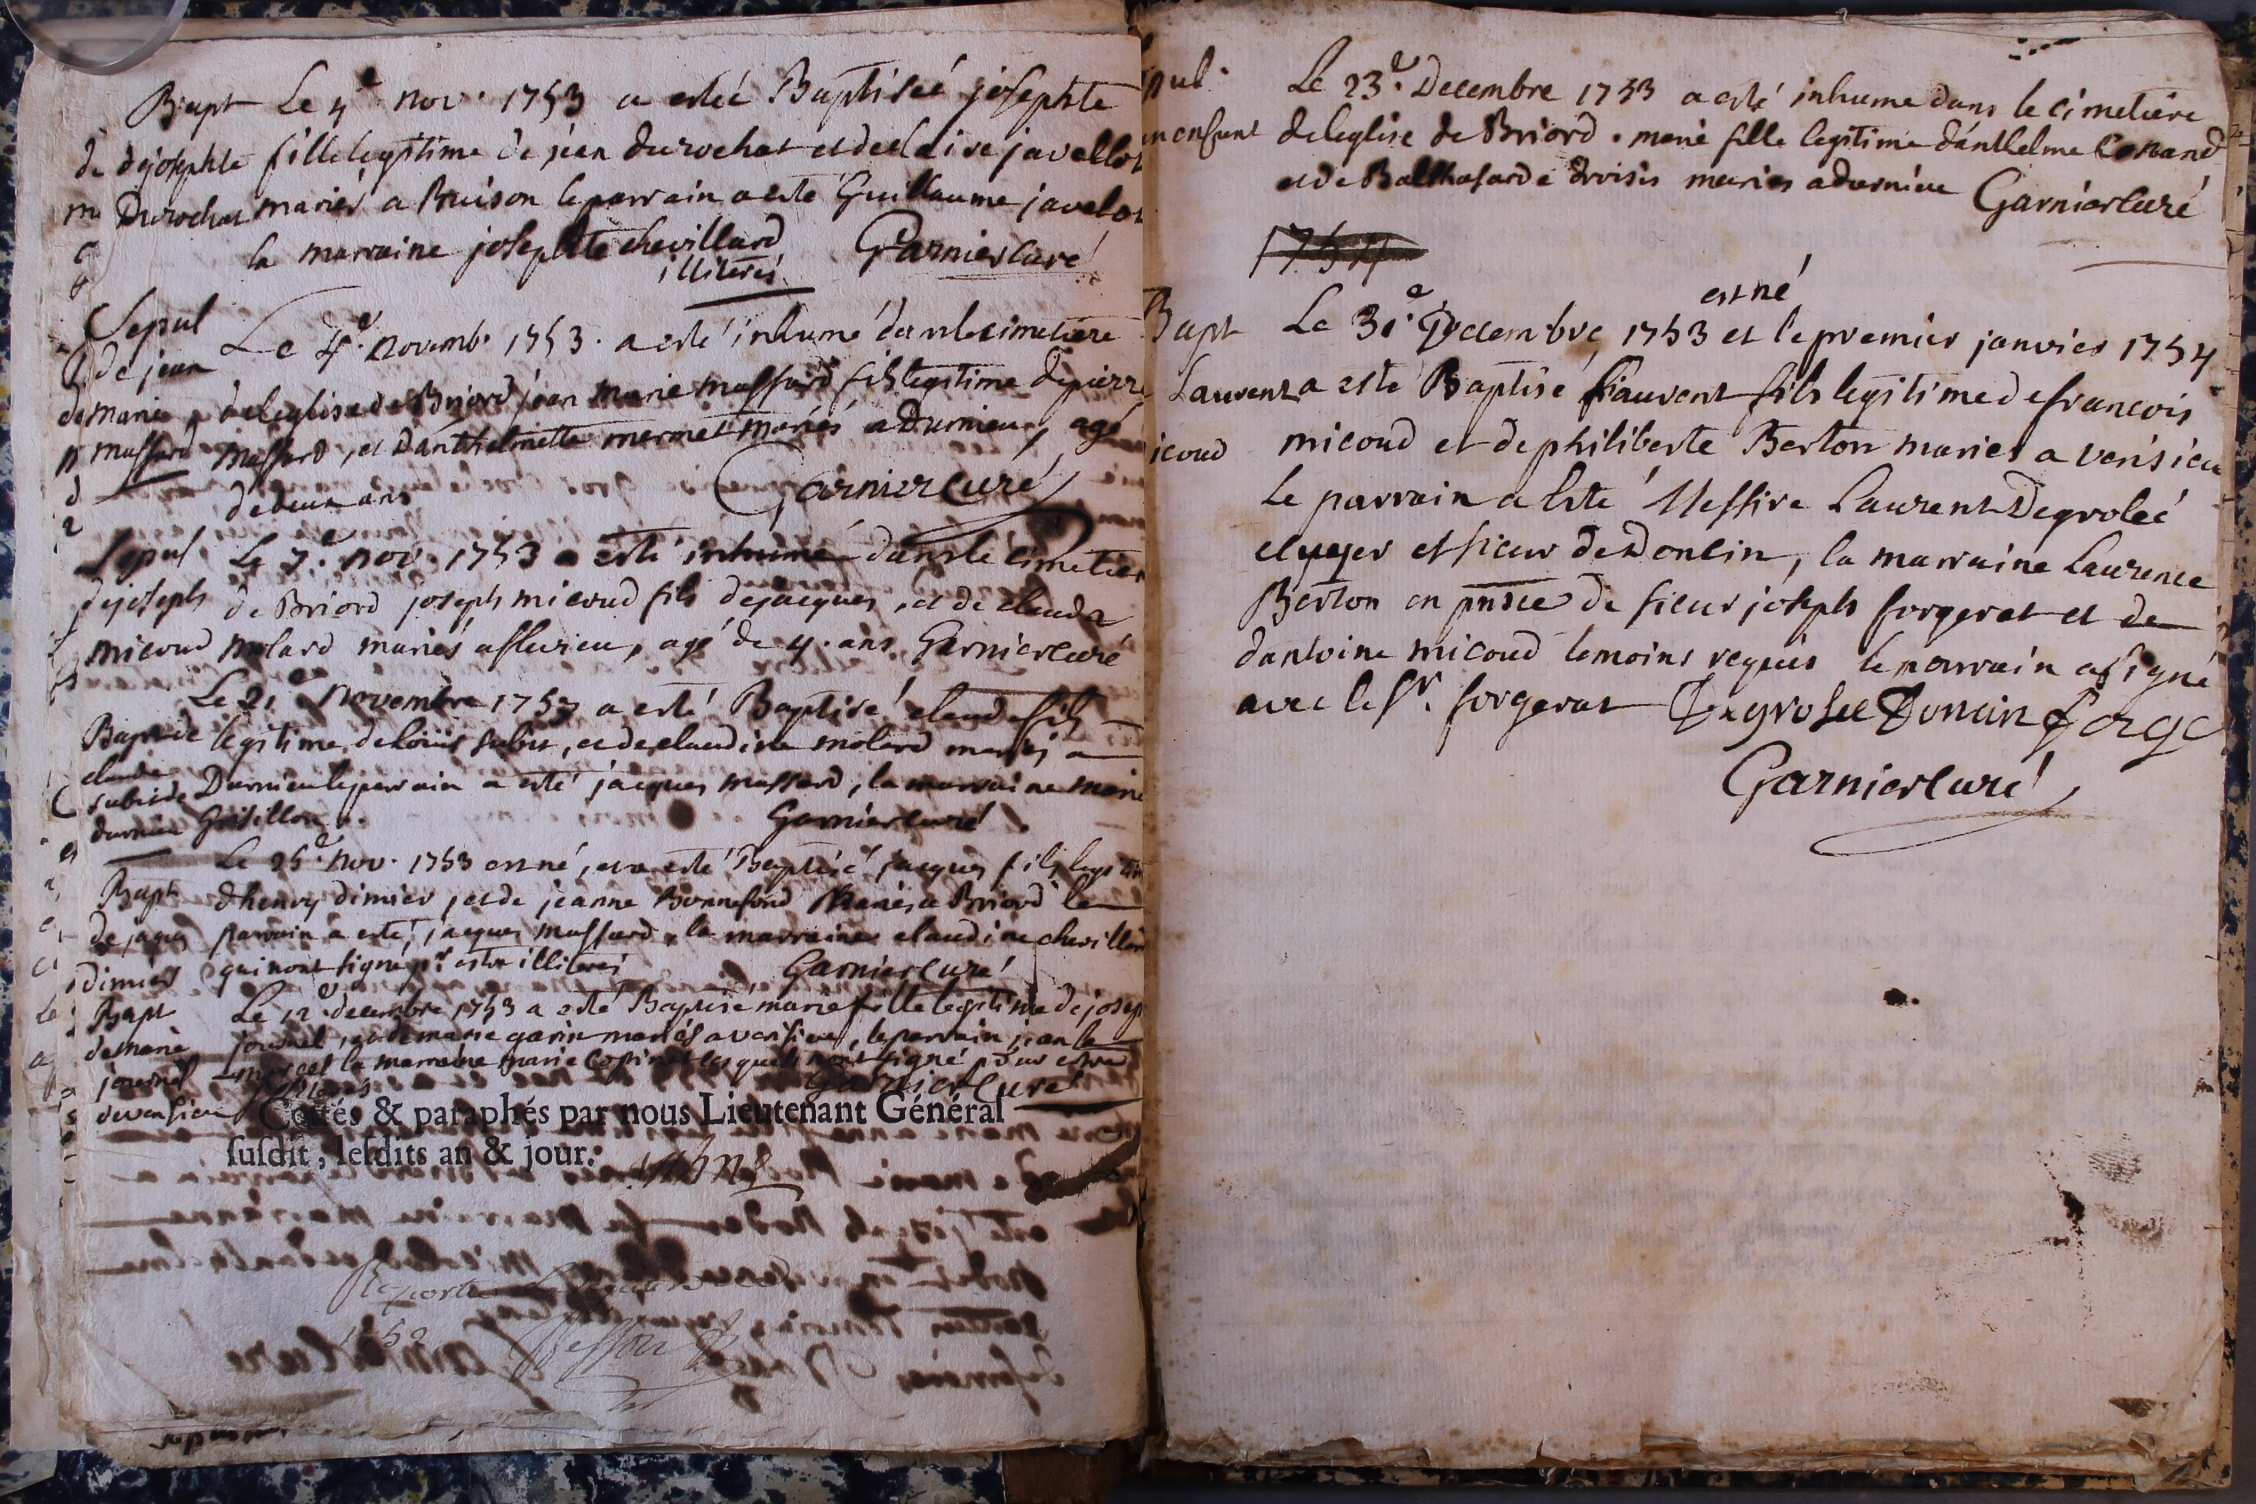 Bapt
de josephte
Durochat
Le 4e nov. 1753 a esteé Baptiseé josephte
fille legitime de jean durochat et de claire javellot
mariés a Buison le parrain a este Guillaume javelot
la marraine josephte chevillard
illiterés
Garnier Curé
Sepul
de jean
marie
massard
Le 4e. novemb. 1753. a esté inhumé dans le cimetiere
de leglise de Briord jean marie massard fils legitime de pierre
massard, et Danthelmette mermet mariés a Durnieu, agé
de deux ans
Garnier Curé
Sepul
de joseph
micoud
Le 7e. nov. 1753 a esté inhumé dans le cimetier
de Briord joseph micoud fils de jacques, et de clauda
molard mariés a flurieu, agé de 4. ans Garnier curé
Bapt de
claude
subit de
durnieu
Le 21e Novembre 1753 a esté Baptisé claude fils
legitime de Loüis subit, et de claudine molard mariés a
Durnieu le parrain a esté jacques massard, la marraine marie
Grisillon.
Garnier curé
Bapt
de jaques
dimier
Le 25e. nov. 1753 est né, et a esté Baptisé jacques fils legitim
dhenry dimier, et de jeanne Bonnefond Mariés a Briord le
parrain a esté, jacques massard, la marraine claudine chevillar
qui nont signé pr. estre illiterés
Garnier Curé
Bapt
de marie
journet
de versieu
Le 12e. decembre 1753 a esté Baptisé marie fille legitime de josep
journet, et de marie garin mariés a versieu, le parrain jean le
la marraine marie lesquels nont signé pour estre
Garnier Curé
Cottés & paraphés par nous Lieutenant Général
susdit, lesdits an & jour.
pul.
un enfant
Le 23e. Decembre 1753 a esté inhume dans le cimetiere
de leglise de Briord. marie fille legitime danthelme Conand
et de Balthasarde droisis maries a durnieu Garnier Curé
1754
Bapt
Laurent
icoud
est né
Le 31e. Decembre 1753 et le premier janvier 1754
a este Baptisé Laurent fils legitime de francois
micoud et de philiberte Berton maries a versieu
Le parrain a Esté Messire Laurent Degroleé
ecuyer et sieur de Doncin, la marraine Laurence
Berton en pnsce de sieur joseph forgerat et de
dantoine micoud temoins requis le parrain a signé
avec le sr. forgerat Degrolee Doncin forge
Garnier Curé